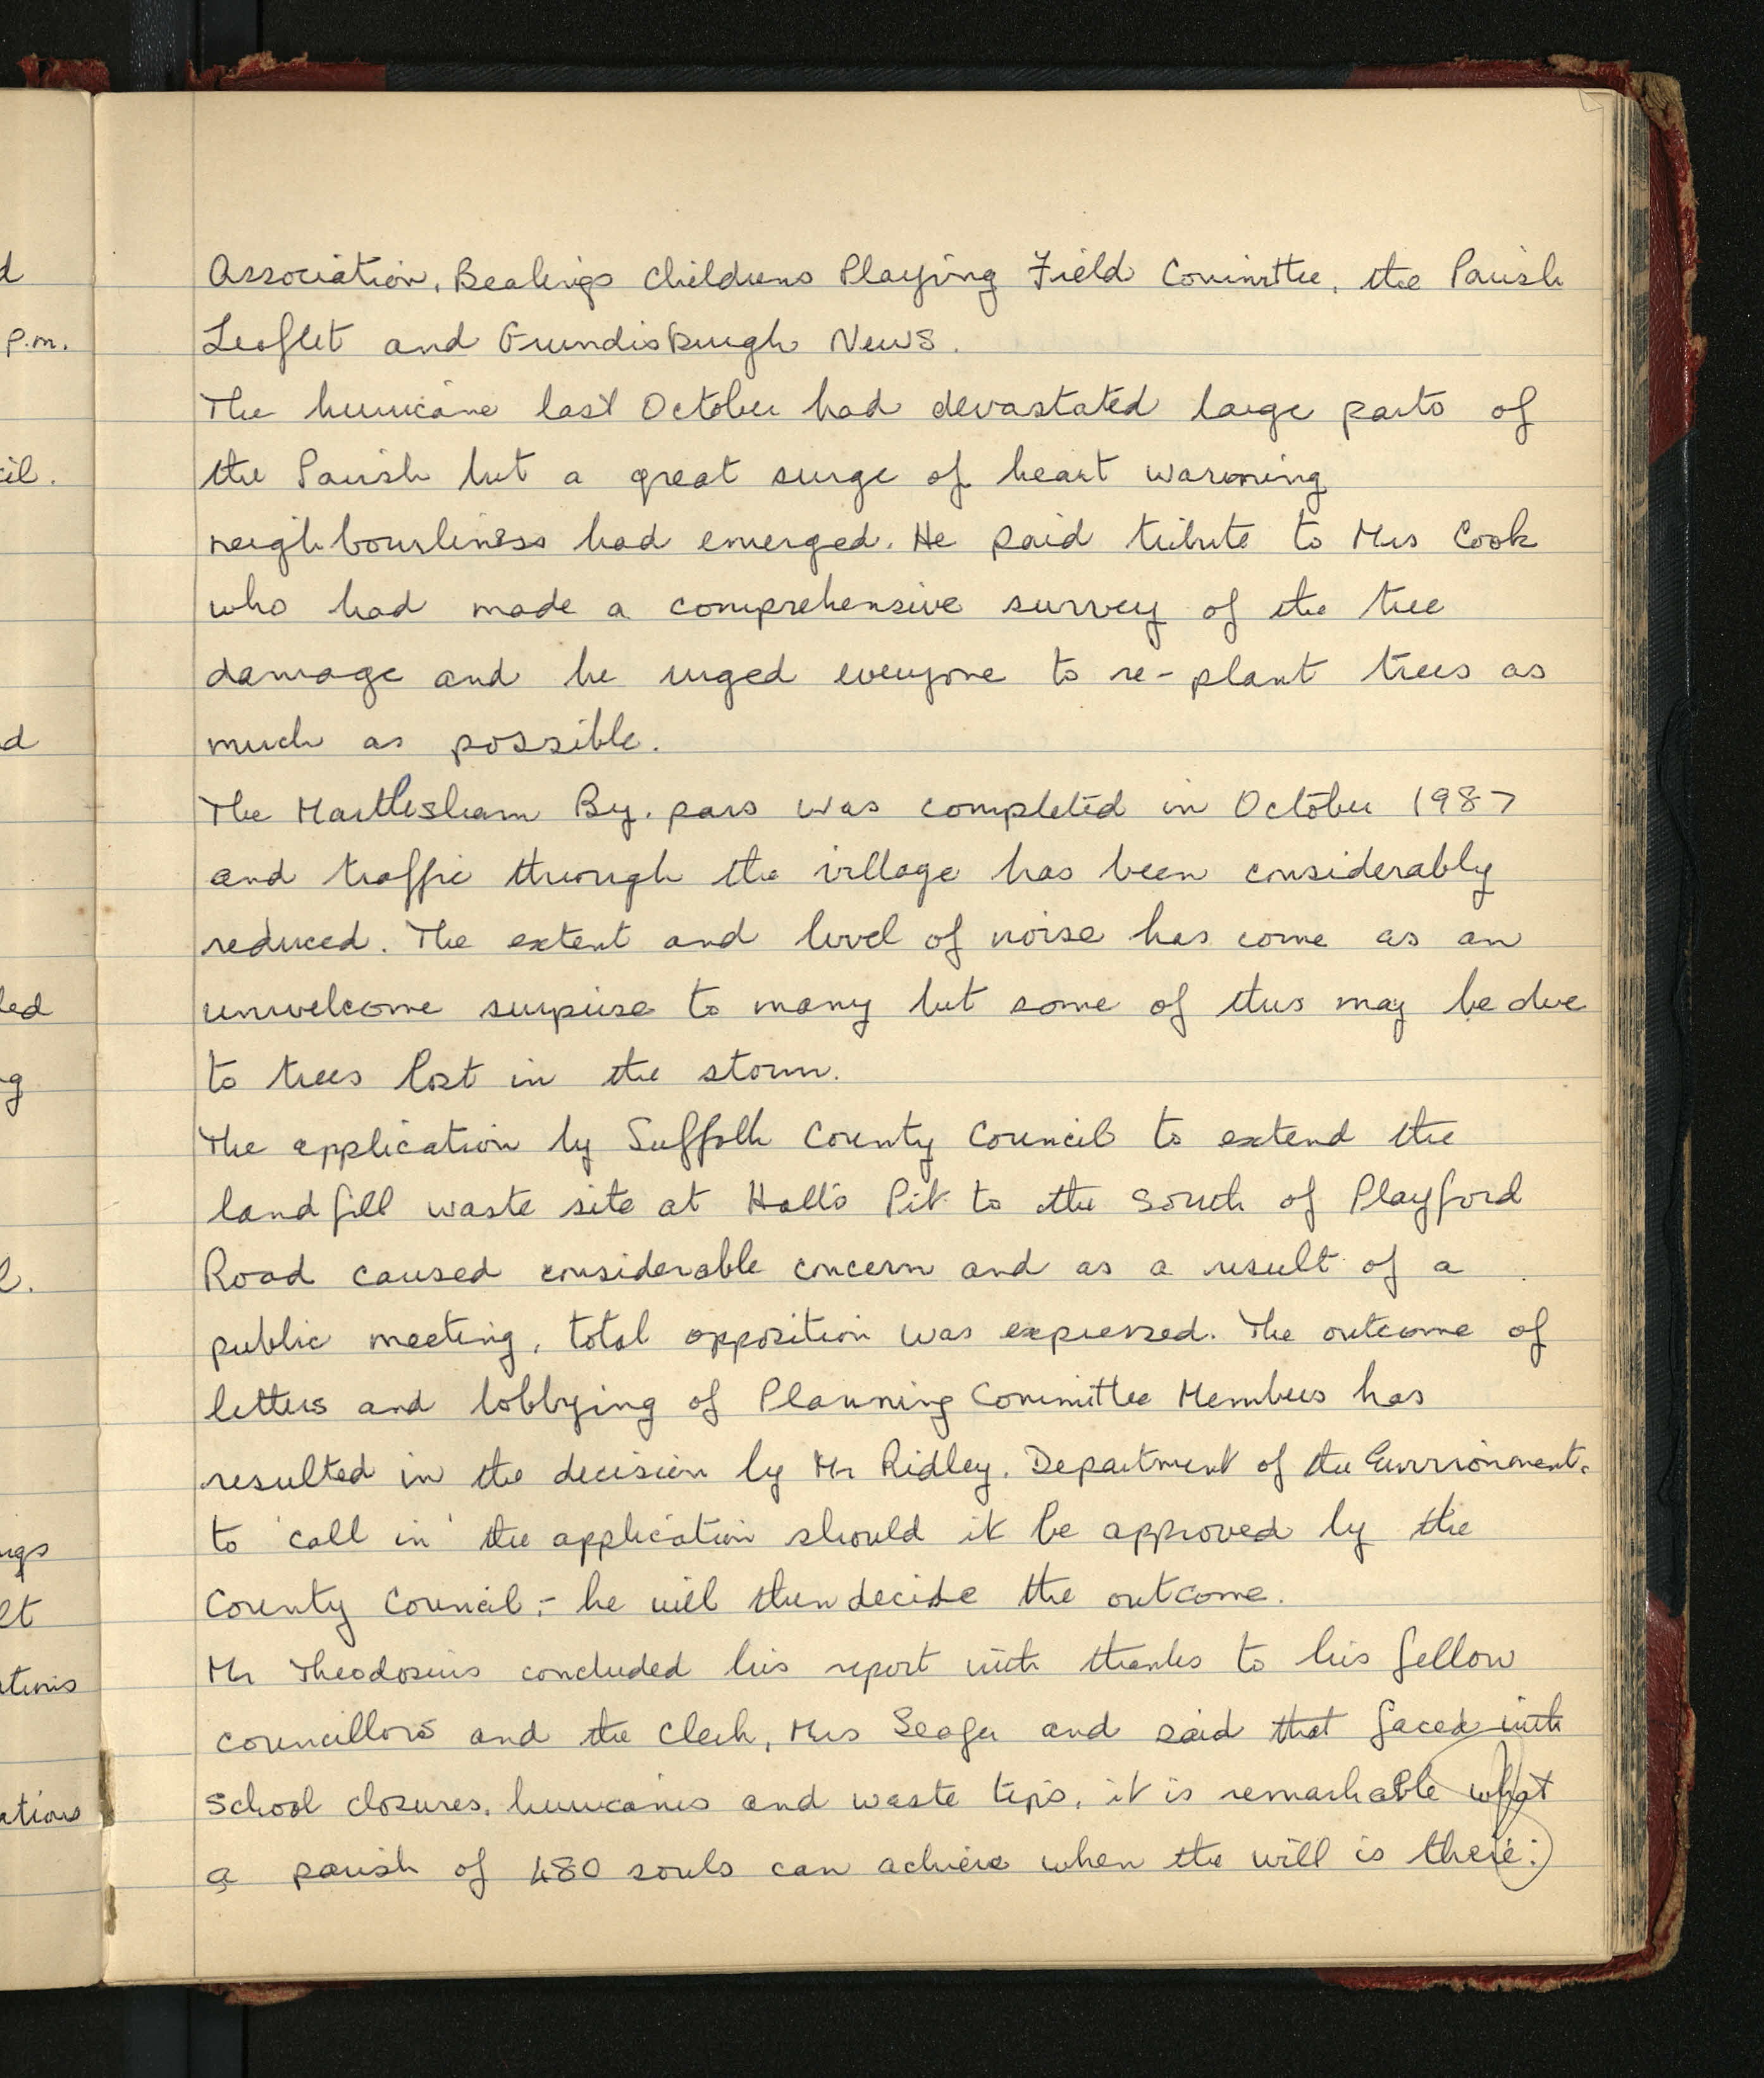 Association, Bealings Childrens Playing Field Committee, the Parish
Leaflet and Grundisburgh News.
The hurricane last October had devastated large parts of
the Parish but a great surge of heart warming
neighbourliness had emerged. He paid tribute to Mrs Cook
who had made a comprehensive survey of the tree
damage and he urged everyone to re-plant trees as
much as possible.
The Martlesham By.pass was completed in October 1987
and traffic through the village has been considerably
reduced. The extent and level of noise has come as an
unwelcome surprise to many but some of this may be due
to trees lost in the storm.
The application by Suffolk County Council to extend the
landfill waste site at Halls Pit to the South of Playford
Road caused considerable concern and as a result of a
public meeting, total opposition was expressed. The outcome of
letters and lobbying of Planning Committee Members has
resulted in the decision by Mr Ridley, Department of the Envrironment.
to 'call in' the application should it be approved by the
County Council; - he will then decide the outcome.
Mr Theodosius concluded his report with thanks to his fellow
councillors and the Clerk, Mrs Seager and said that faced with
School closures, hurricanes and waste tips, it is remarkable what
a parish of 480 souls can achieve when the will is there!
d
p.m.
cil.
d
led
ng
l.
ngs
lt
ations
ations